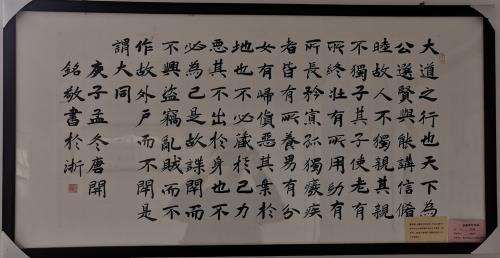 大道之行也天下為
公選賢與能講信脩
睦故人不獨親其親
不獨子其子使老有
所終壯有所用幼有
所長矜寡孤獨癈疾
者皆有所養男有分
女有歸貨惡其棄於
地也不必藏於己力
惡其不出於身也不
必為己是故謀閉而
不興盜竊亂賊而不
作故外戶而不閉是
謂大同
庚子孟冬唐開
銘敬書於浙